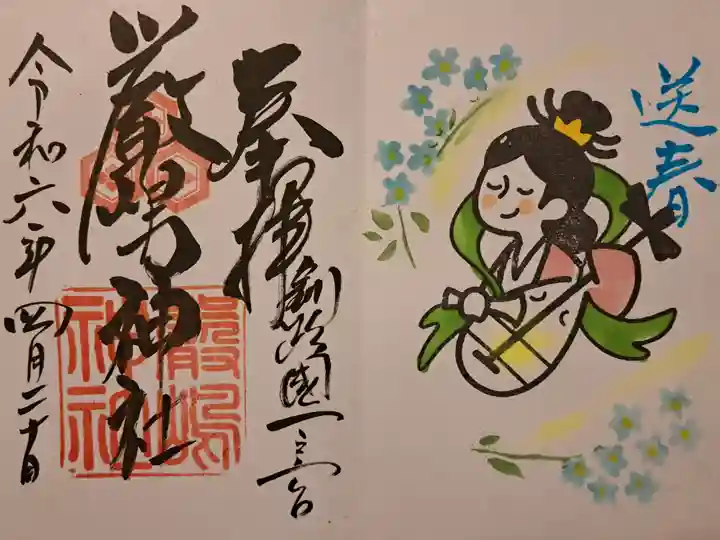 送春
奉拝
釧路國一之宮
厳島神社
嚴嶋
神社
令和六年四月二十日